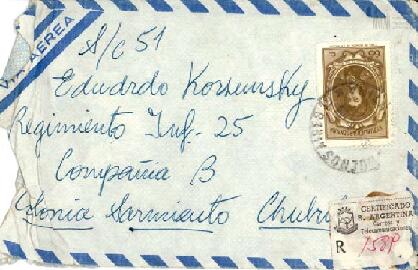 VIA AEREA
S/c 51
Eduardo Kossunsky
Regimiento Inf. 25
Compañia B
Colonia Sarmiento Chubut
BUENOS AIRES
CERTIFICADO
R. ARGENTINA
Correos y
Telecomunicaciones
R